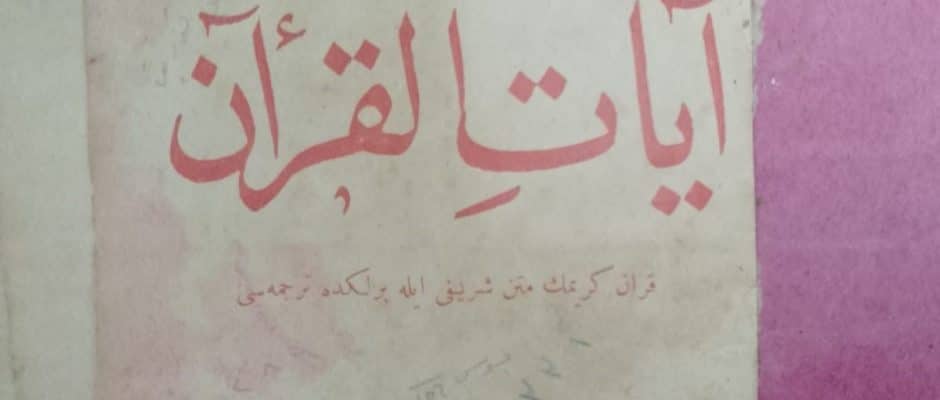 آيَاتِ القرأآن
قرآن كريمك متن شريفى ايله برلكده ترجمه‌سى